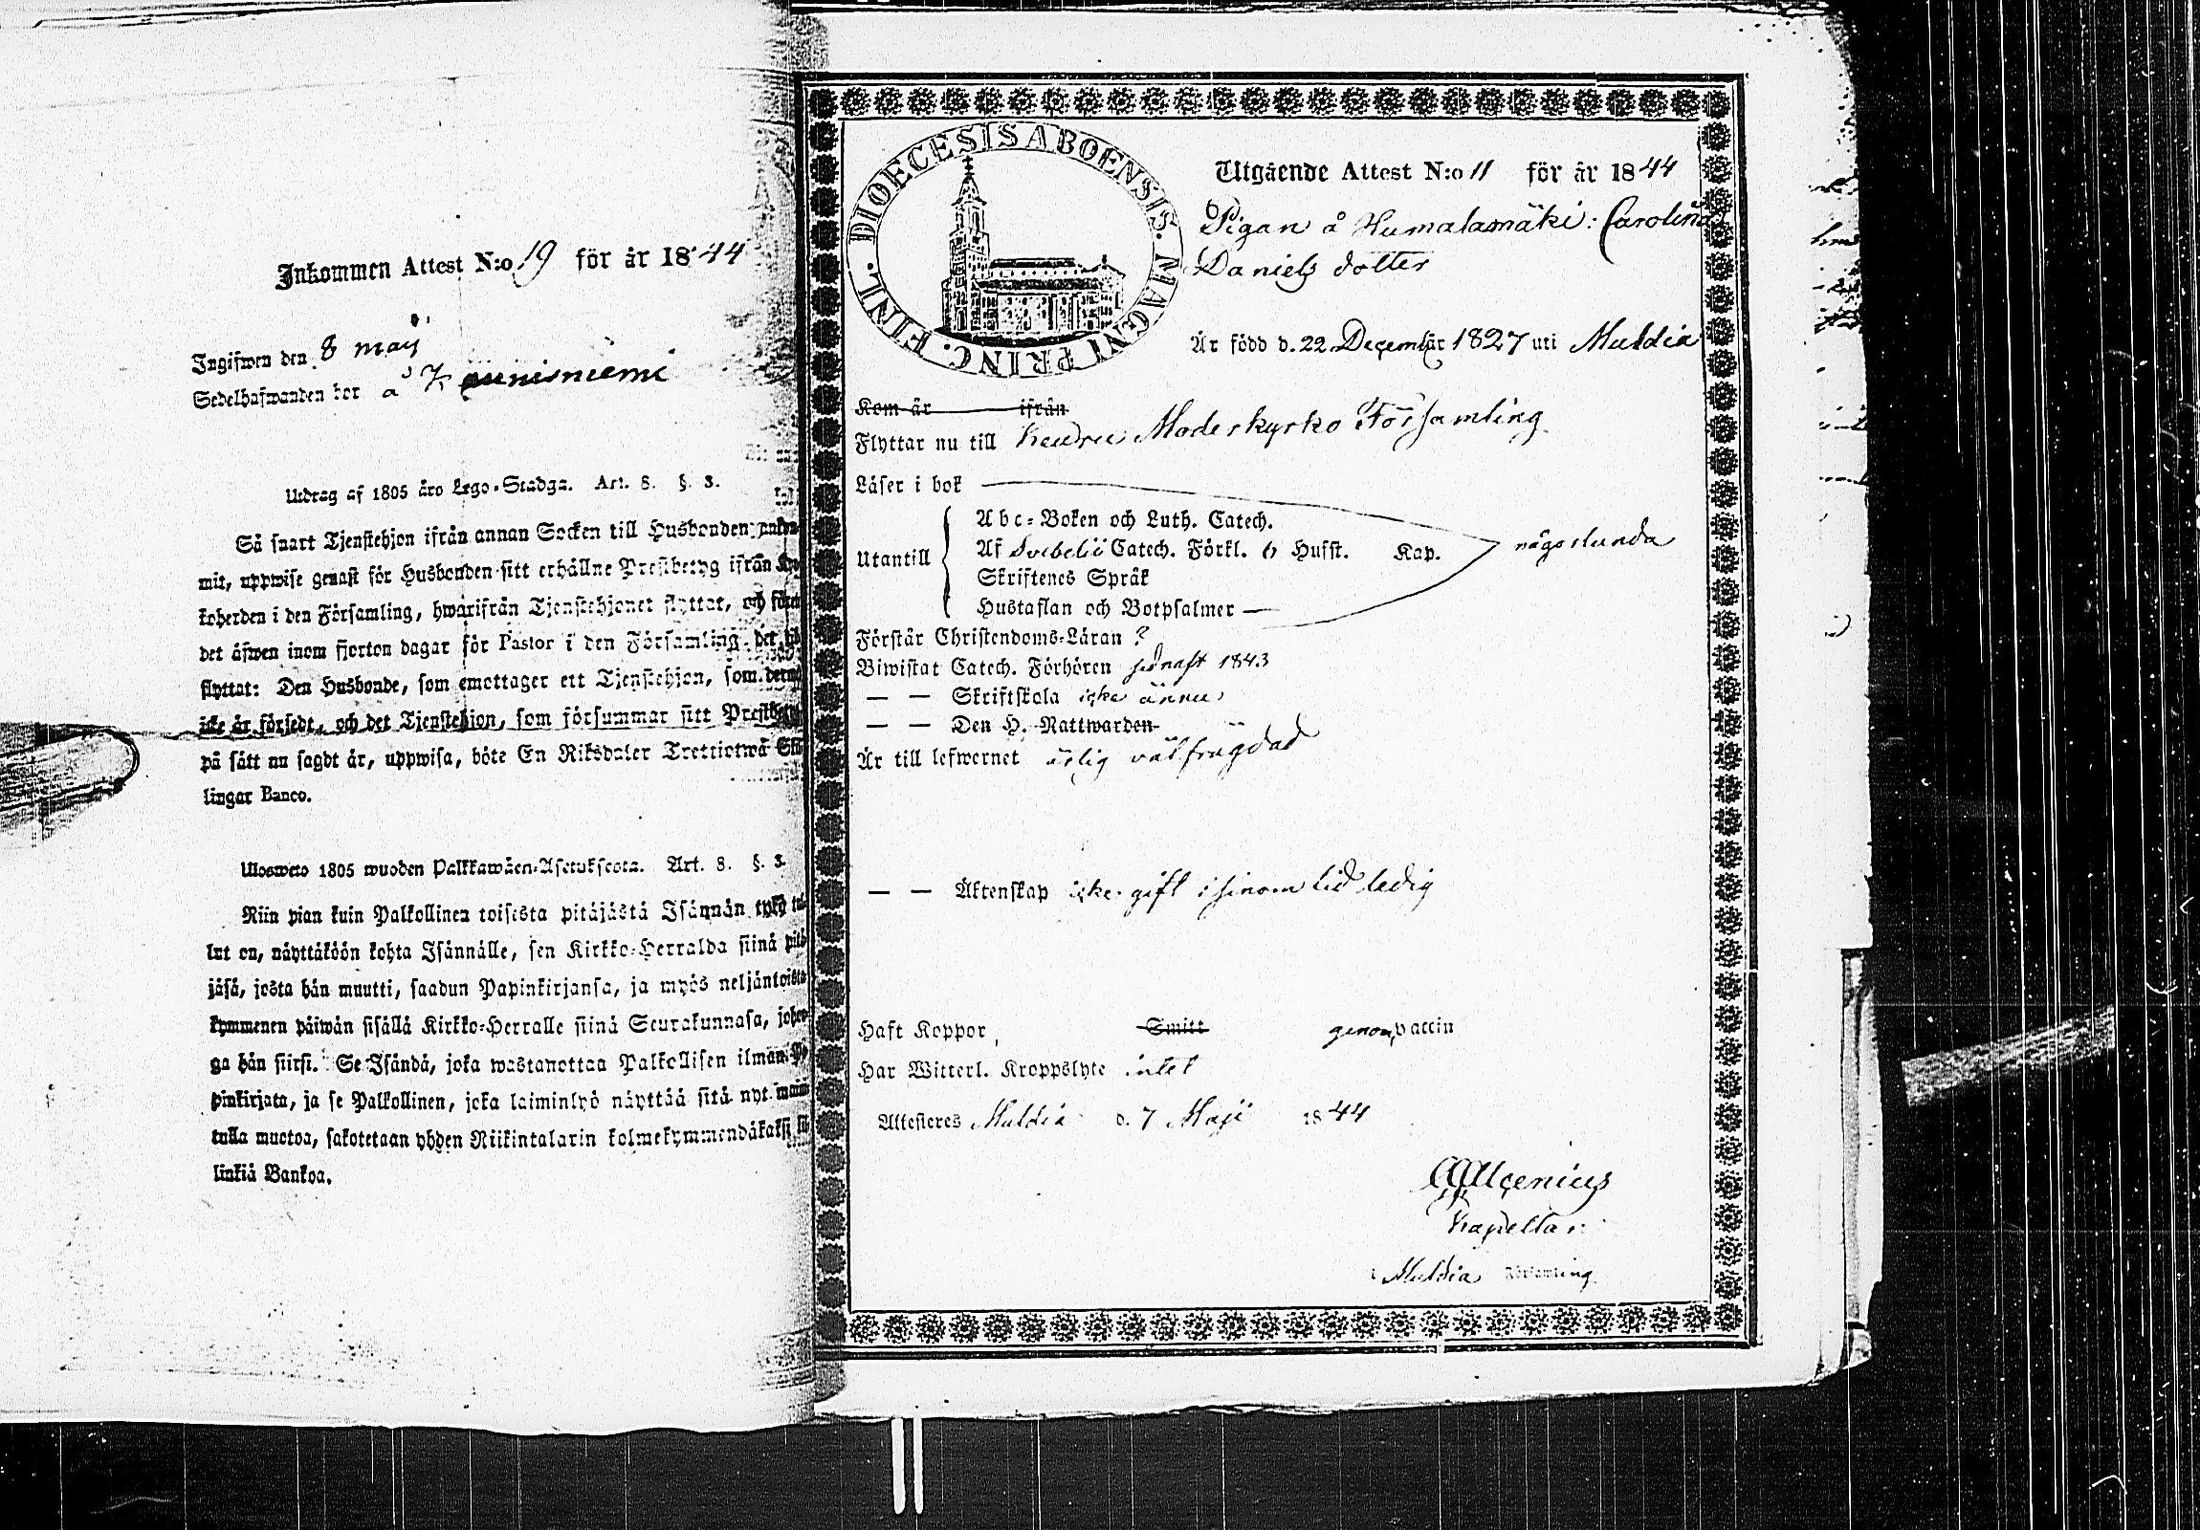 Inkommen Attest N:o 19 för år 1844
Ingifwen den 8 maij
Sedelhafwanden bor å Kaunisniemi
Utdrag af 1805 års Lego-Stadga. Art. 8. §. 3.
Så snart Tjenstehjon ifrån annan Socken till Husbonden ankom-
mit, uppwise genast för Husbonden sitt erhållne Prestbetyg ifrån Kyr-
koherden i den Församling, hwarifrån Tjenstehjonet flyttat, och
det äfwen inom fjorton dagar för Pastor i den Församling, dit
flyttat: Den Husbonde, som emottager ett Tjenstehjon, som
icke är försedt, och det Tjenstehjon, som försummar sitt Prestbetyg
på sätt nu sagdt är, uppwisa, böte En Riksdaler Trettiotwå Skil-
lingar Banco.
Ulosweto 1805 wuoden Palkkawäen-Asetuksesta. Art. 8. §. 3.
Niin pian kuin Palkollinen toisesta pitäjästä Isännän tykö tul-
lut on, näyttäköön kohta Isännälle, sen Kirkko-Herralda siinä pitä-
jäsä, josta hän muutti, saadun Papinkirjansa, ja myös neljäntoista-
kymmenen päiwän sisällä Kirkko-Herralle siinä Seurakunnasa, johon-
ga hän siirsi. Se Isändä, joka wastanottaa Palkollisen ilman Pa-
pinkirjata, ja se Palkollinen, joka laiminlyö näyttää sitä nyt maini-
tulla muotoa, sakotetaan yhden Riikintalarin kolmekymmendäkaksi kil-
linkiä Bankoa.
DIOECESIS ABOENSIS. MAGNI PRINC. FINL.
Utgående Attest N:o 11 för år 1844
Pigan å Humalamäki: Carolina
Daniels dotter
Är född d. 22 December 1827 uti Muldia
Kom år ifrån
Flyttar nu till Keuru Moderkyrko Församling
Läser i bok
Utantill
Abc-Boken och Luth. Catech.
Af Svebelii Catech. Förkl. 6 Hufst. Kap. någorlunda
Skriftenes Språk
Hustaflan och Botpsalmer
Förstår Christendoms-Läran ?
Biwistat Catech. Förhören sednast 1843
— — Skriftskola icke ännu
— — Den H. Nattwarden
Är till lefwernet ärlig välfrägdad
— — Äktenskap icke gift i sinom tid ledig
Haft Koppor, Smitt genom vaccin
Har Witterl. Kroppslyte intet
Attesteres Muldia d. 7 Maji 1844
Kapellan
i Muldia Församling